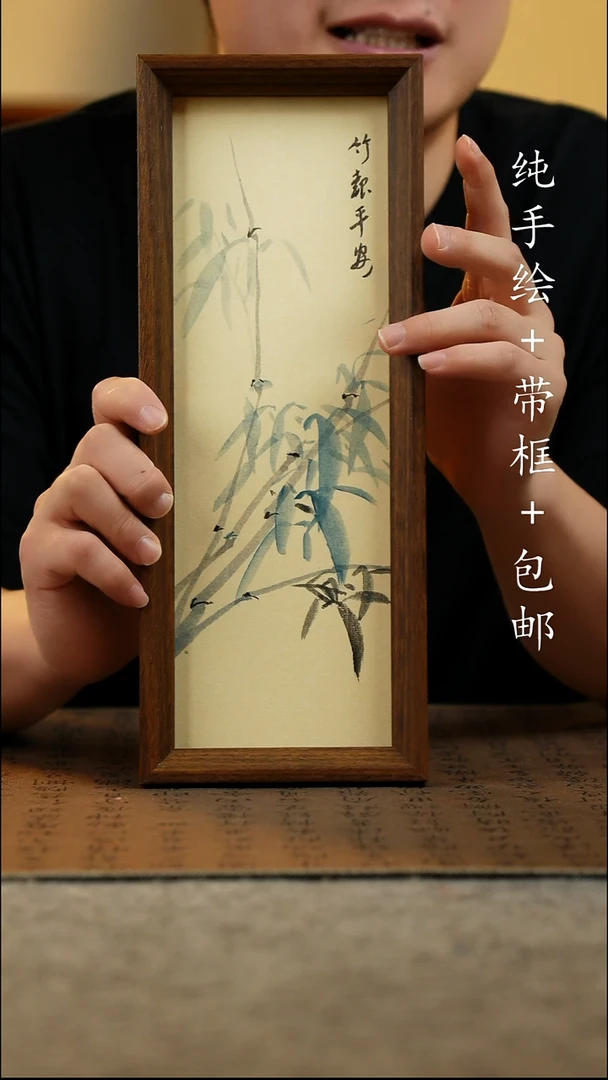 纯手绘+带框+包邮
竹報平安